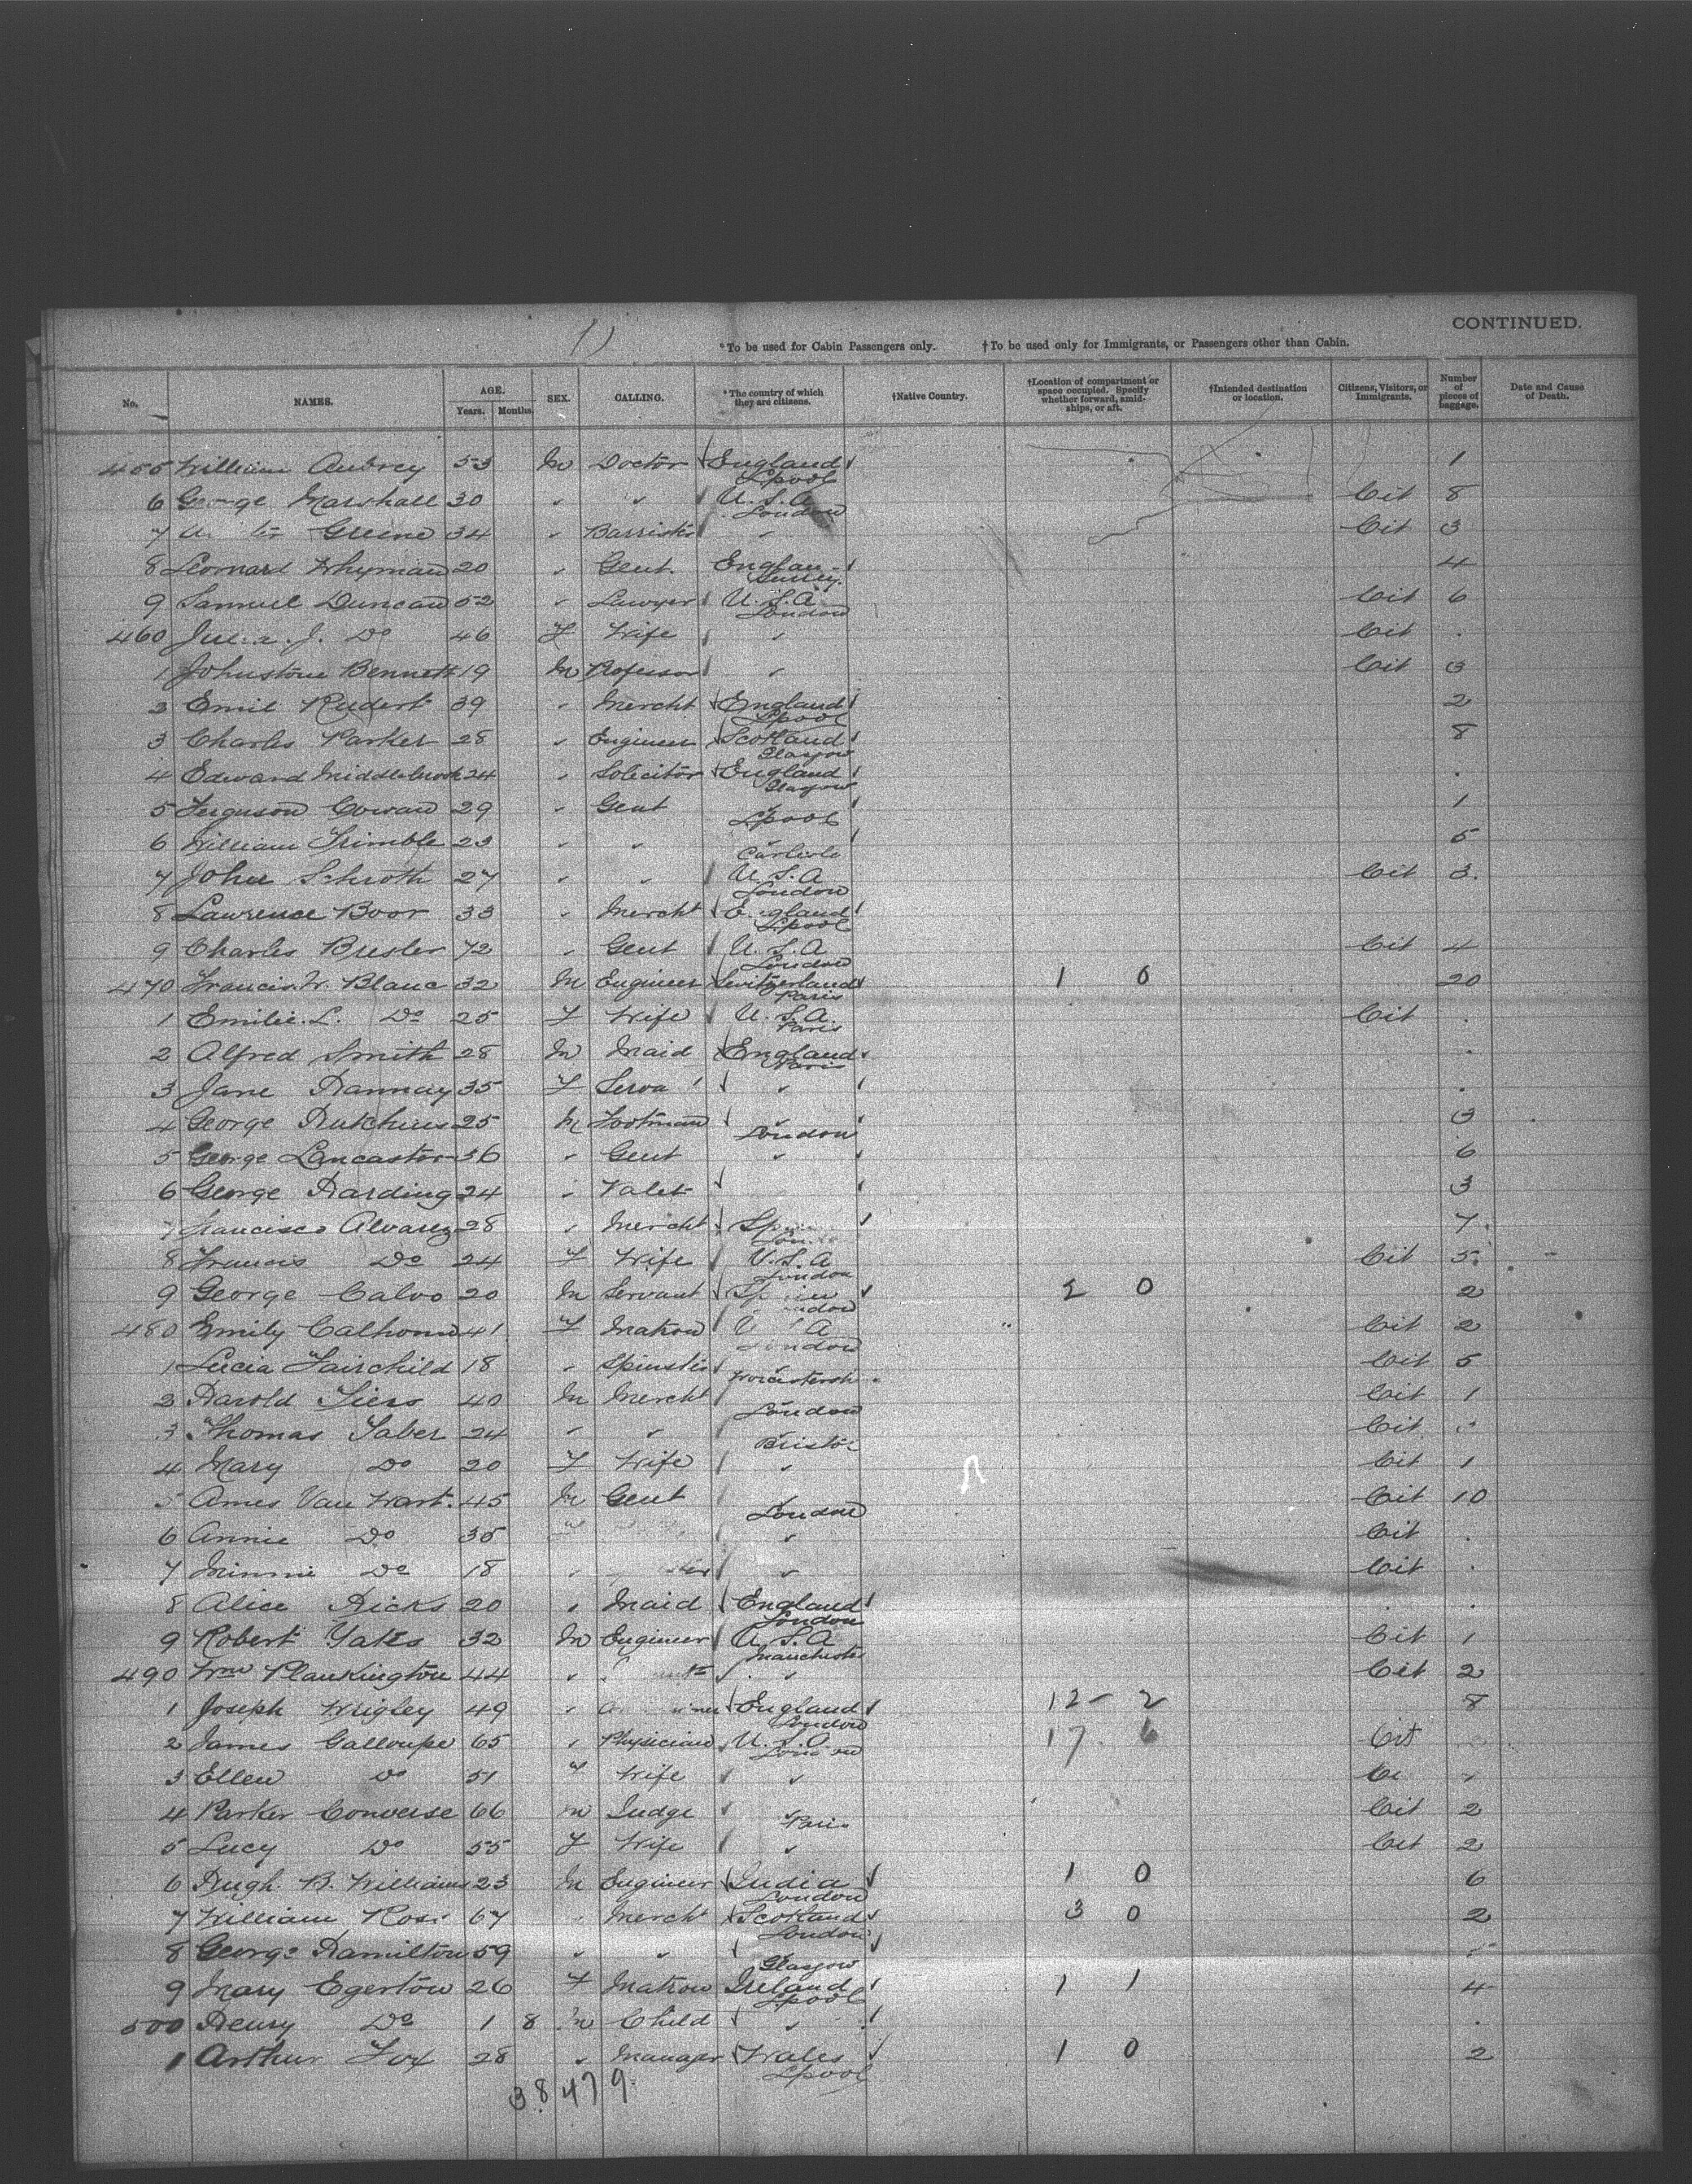 CONTINUED.
11
*To be used for Cabin Passengers only. †To be used only for Immigrants, or Passengers other than Cabin.
No. NAMES. AGE. Years. Months. SEX. CALLING. *The country of which they are citizens. †Native Country. †Location of compartment or space occupied. Specify whether forward, amidships, or aft. †Intended destination or location. Citizens, Visitors, or Immigrants. Number of pieces of baggage. Date and Cause of Death.
455 William Aubrey 53 M Doctor England L'pool 1
6 George Marshall 30 " " U.S.A London Cit 8
7 Greene 34 " Barrister " Cit 3
8 Leonard Whyman 20 " Gent. England Surrey. 4
9 Samuel Duncan 52 " Lawyer U.S.A London Cit 6
460 Julia. J. Do 46 F Wife " Cit .
1 Johnstone Bennett 19 M Professor " Cit 3
2 Emil Rudert 39 " Mercht England L'pool 2
3 Charles Parker 28 " Engineer Scotland Glasgow 8
4 Edward Middlebrook 24 " Solicitor England Glasgow .
5 Ferguson Cowan 29 " Gent " L'pool 1
6 William Trimble 23 " " Carlisle 5
7 John Schroth 27 " " U.S.A London Cit 3.
8 Lawrence Boor 33 " Mercht England L'pool
9 Charles Bresler 72 " Gent U.S.A London Cit 4
470 Francis. W. Blanc 32 M Engineer Switzerland Paris 1 0 20
1 Emilie. L. Do 25 F Wife U.S.A. Paris Cit .
2 Alfred Smith 28 M Maid England Paris .
3 Jane Hannay 35 F Serva " .
4 George Hutchins 25 M Footman " London 3
5 George Lancaster 36 " Gent " 6
6 George Harding 24 " Valet 3
7 Francisco Alvarez 28 " Mercht Sp 7.
8 Francis Do 24 F Wife U.S.A London Cit 5.
9 George Calvo 20 M Servant Spain London 2 0 2
480 Emily Calhoun 41 F Matron U S A London Cit 2
1 Lucia Fairchild 18 " Spinster " Worcestersh Cit 5
2 Harold Siers 40 M Mercht London Cit 1
3 Thomas Taber 24 " " " Bristol Cit .
4 Mary Do 20 F Wife " Cit 1
5 Ames Van Wart. 45 M Gent " London Cit 10
6 Annie Do 35 " Cit .
7 Minnie Do 18 " " Cit .
8 Alice Hicks 20 " Maid England London .
9 Robert Yates 32 M Engineer U.S.A Manchester Cit 1
490 Wm Plankington 44 " " Cit 2
1 Joseph Wrigley 49 " England London 12 - 2 8
2 James Galloupe 65 " Physician U.S.A London 17. 6 Cit
3 Ellen Do 51 F Wife "
4 Parker Converse 66 M Judge " Paris Cit 2
5 Lucy Do 55 F Wife " Cit 2
6 Hugh. B. Williams 23 M Engineer India London 1 0 6
7 William Ross 67 " Mercht Scotland London 3 0 2
8 George Hamilton 59 " " Glasgow
9 Mary Egerton 26 F Matron Ireland L'pool 1 1 4
500 Henry Do 1 8 M Child " .
1 Arthur Fox 28 " Manager Wales L'pool 1 0 2
38 479